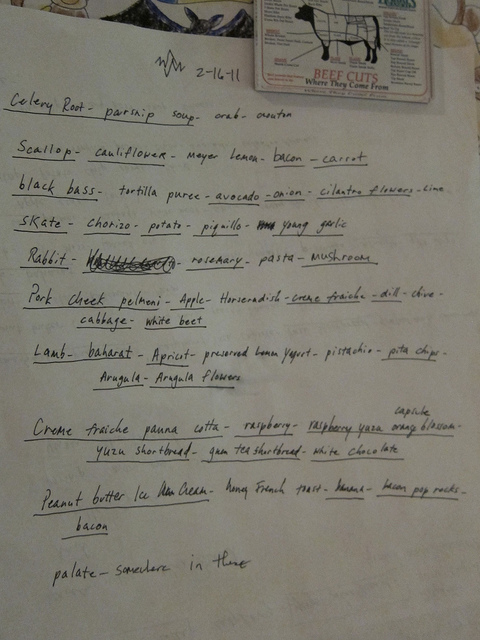 BEEF CUTS
Where They Come From
2-16-11
Celery Root - parsnip soup - crab - crouton
Scallop - cauliflower - meyer lemon - bacon - carrot
black bass - tortilla puree - avocado - onion - cilantro flowers - lime
Skate - chorizo - potato - piquillo - young garlic
Rabbit - rosemary - pasta - mushroom
Pork cheek pelmeni - Apple - Horseradish - creme fraiche - dill - chive -
cabbage - white beet
Lamb - baharat - Apricot - preserved lemon yogurt - pistachio - pita chips -
Arugula - Arugula flowers
capsule
Creme fraiche panna cotta - raspberry - raspberry yuzu orange blossom -
yuzu shortbread - tea shortbread - white chocolate
Peanut butter Ice Cream - honey French toast - banana - bacon pop rocks -
bacon
palate - somewhere in there